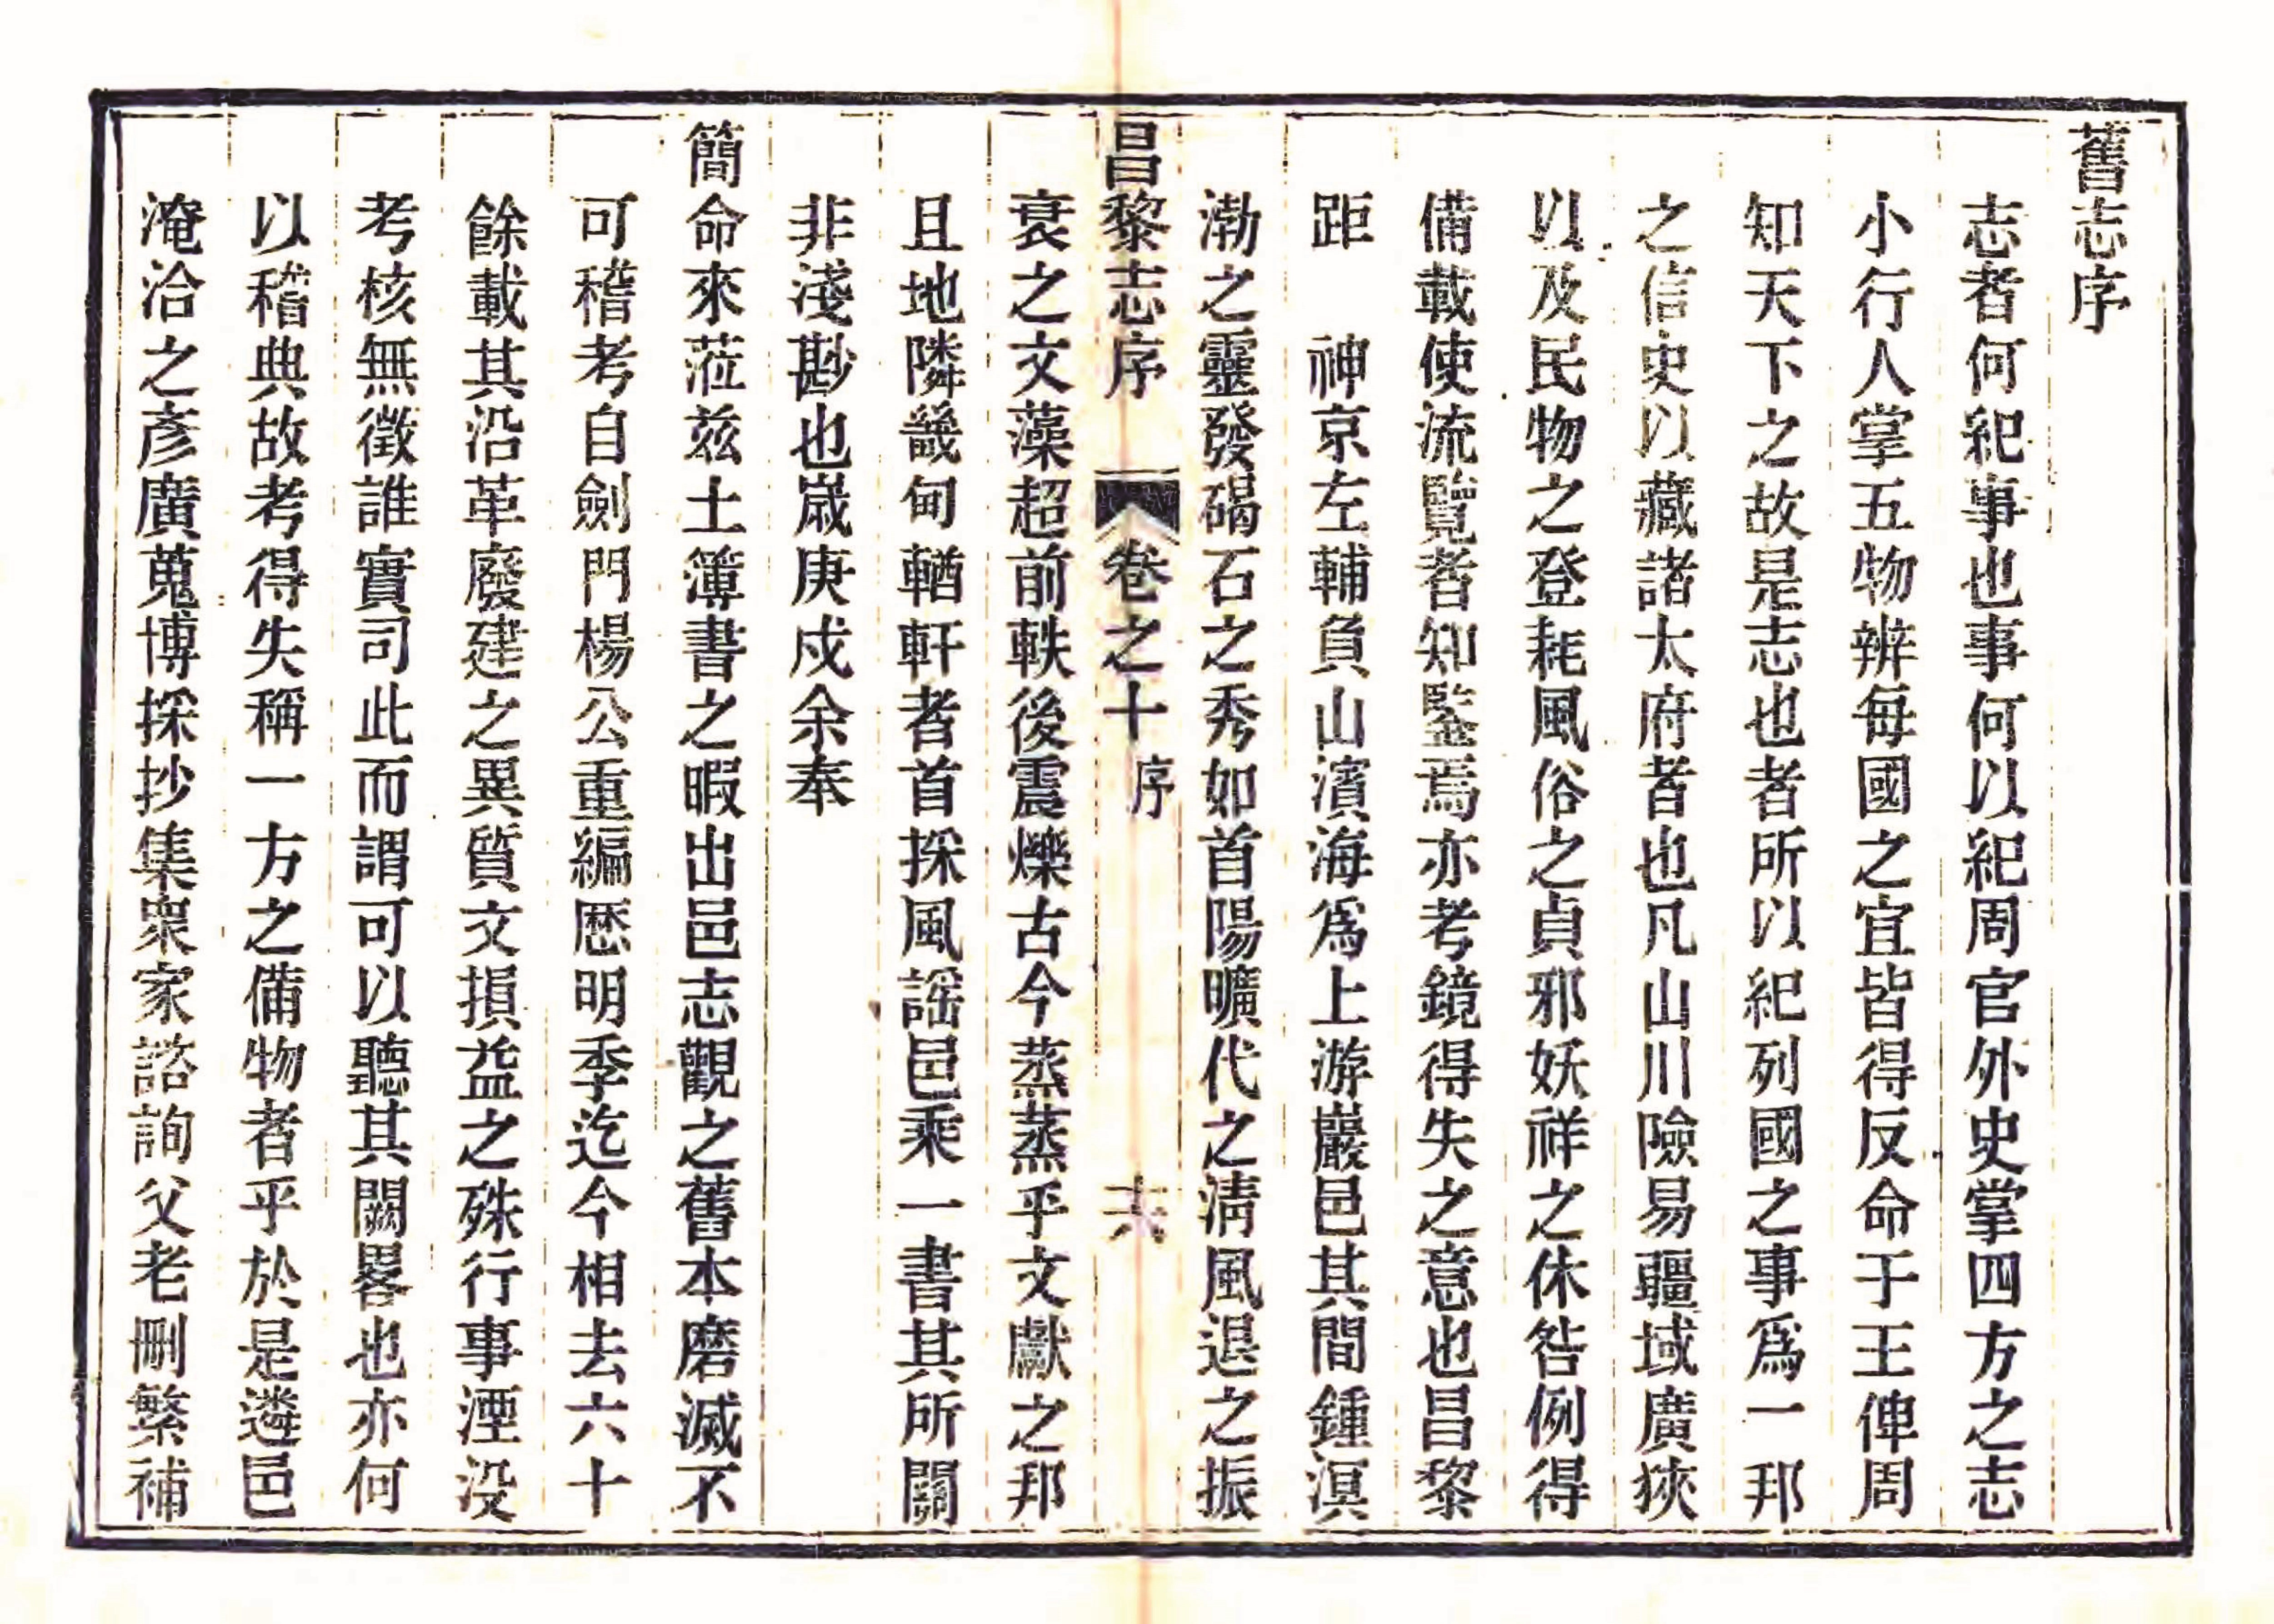 舊志序
志者何紀事也事何以紀周官外史掌四方之志
小行人掌五物辨每國之宜皆得反命于王俾周
知天下之故是志也者所以紀列國之事爲一邦
之信史以藏諸太府者也凡山川險易疆域廣狹
以及民物之登耗風俗之貞邪妖祥之休咎例得
備載使流覽者知鑒焉亦考鏡得失之意也昌黎
距 神京左輔負山濱海爲上游巖邑其間鍾溟
渤之靈發碣石之秀如首陽曠代之淸風退之振
昌黎志序 卷之十 序 十六
衰之文藻超前軼後震爍古今蒸蒸乎文獻之邦
且地隣畿甸輶軒者首採風謡邑乘一書其所關
非淺尠也嵗庚戍余奉
簡命來蒞兹土簿書之暇出邑志觀之舊本磨滅不
可稽考自劍門楊公重編厯明季迄今相去六十
餘載其沿革廢建之異質文損益之殊行事湮没
考核無徵誰實司此而謂可以聽其闕畧也亦何
以稽典故考得失稱一方之備物者乎於是遴邑
淹洽之彥廣蒐博採抄集衆家諮詢父老刪繁補